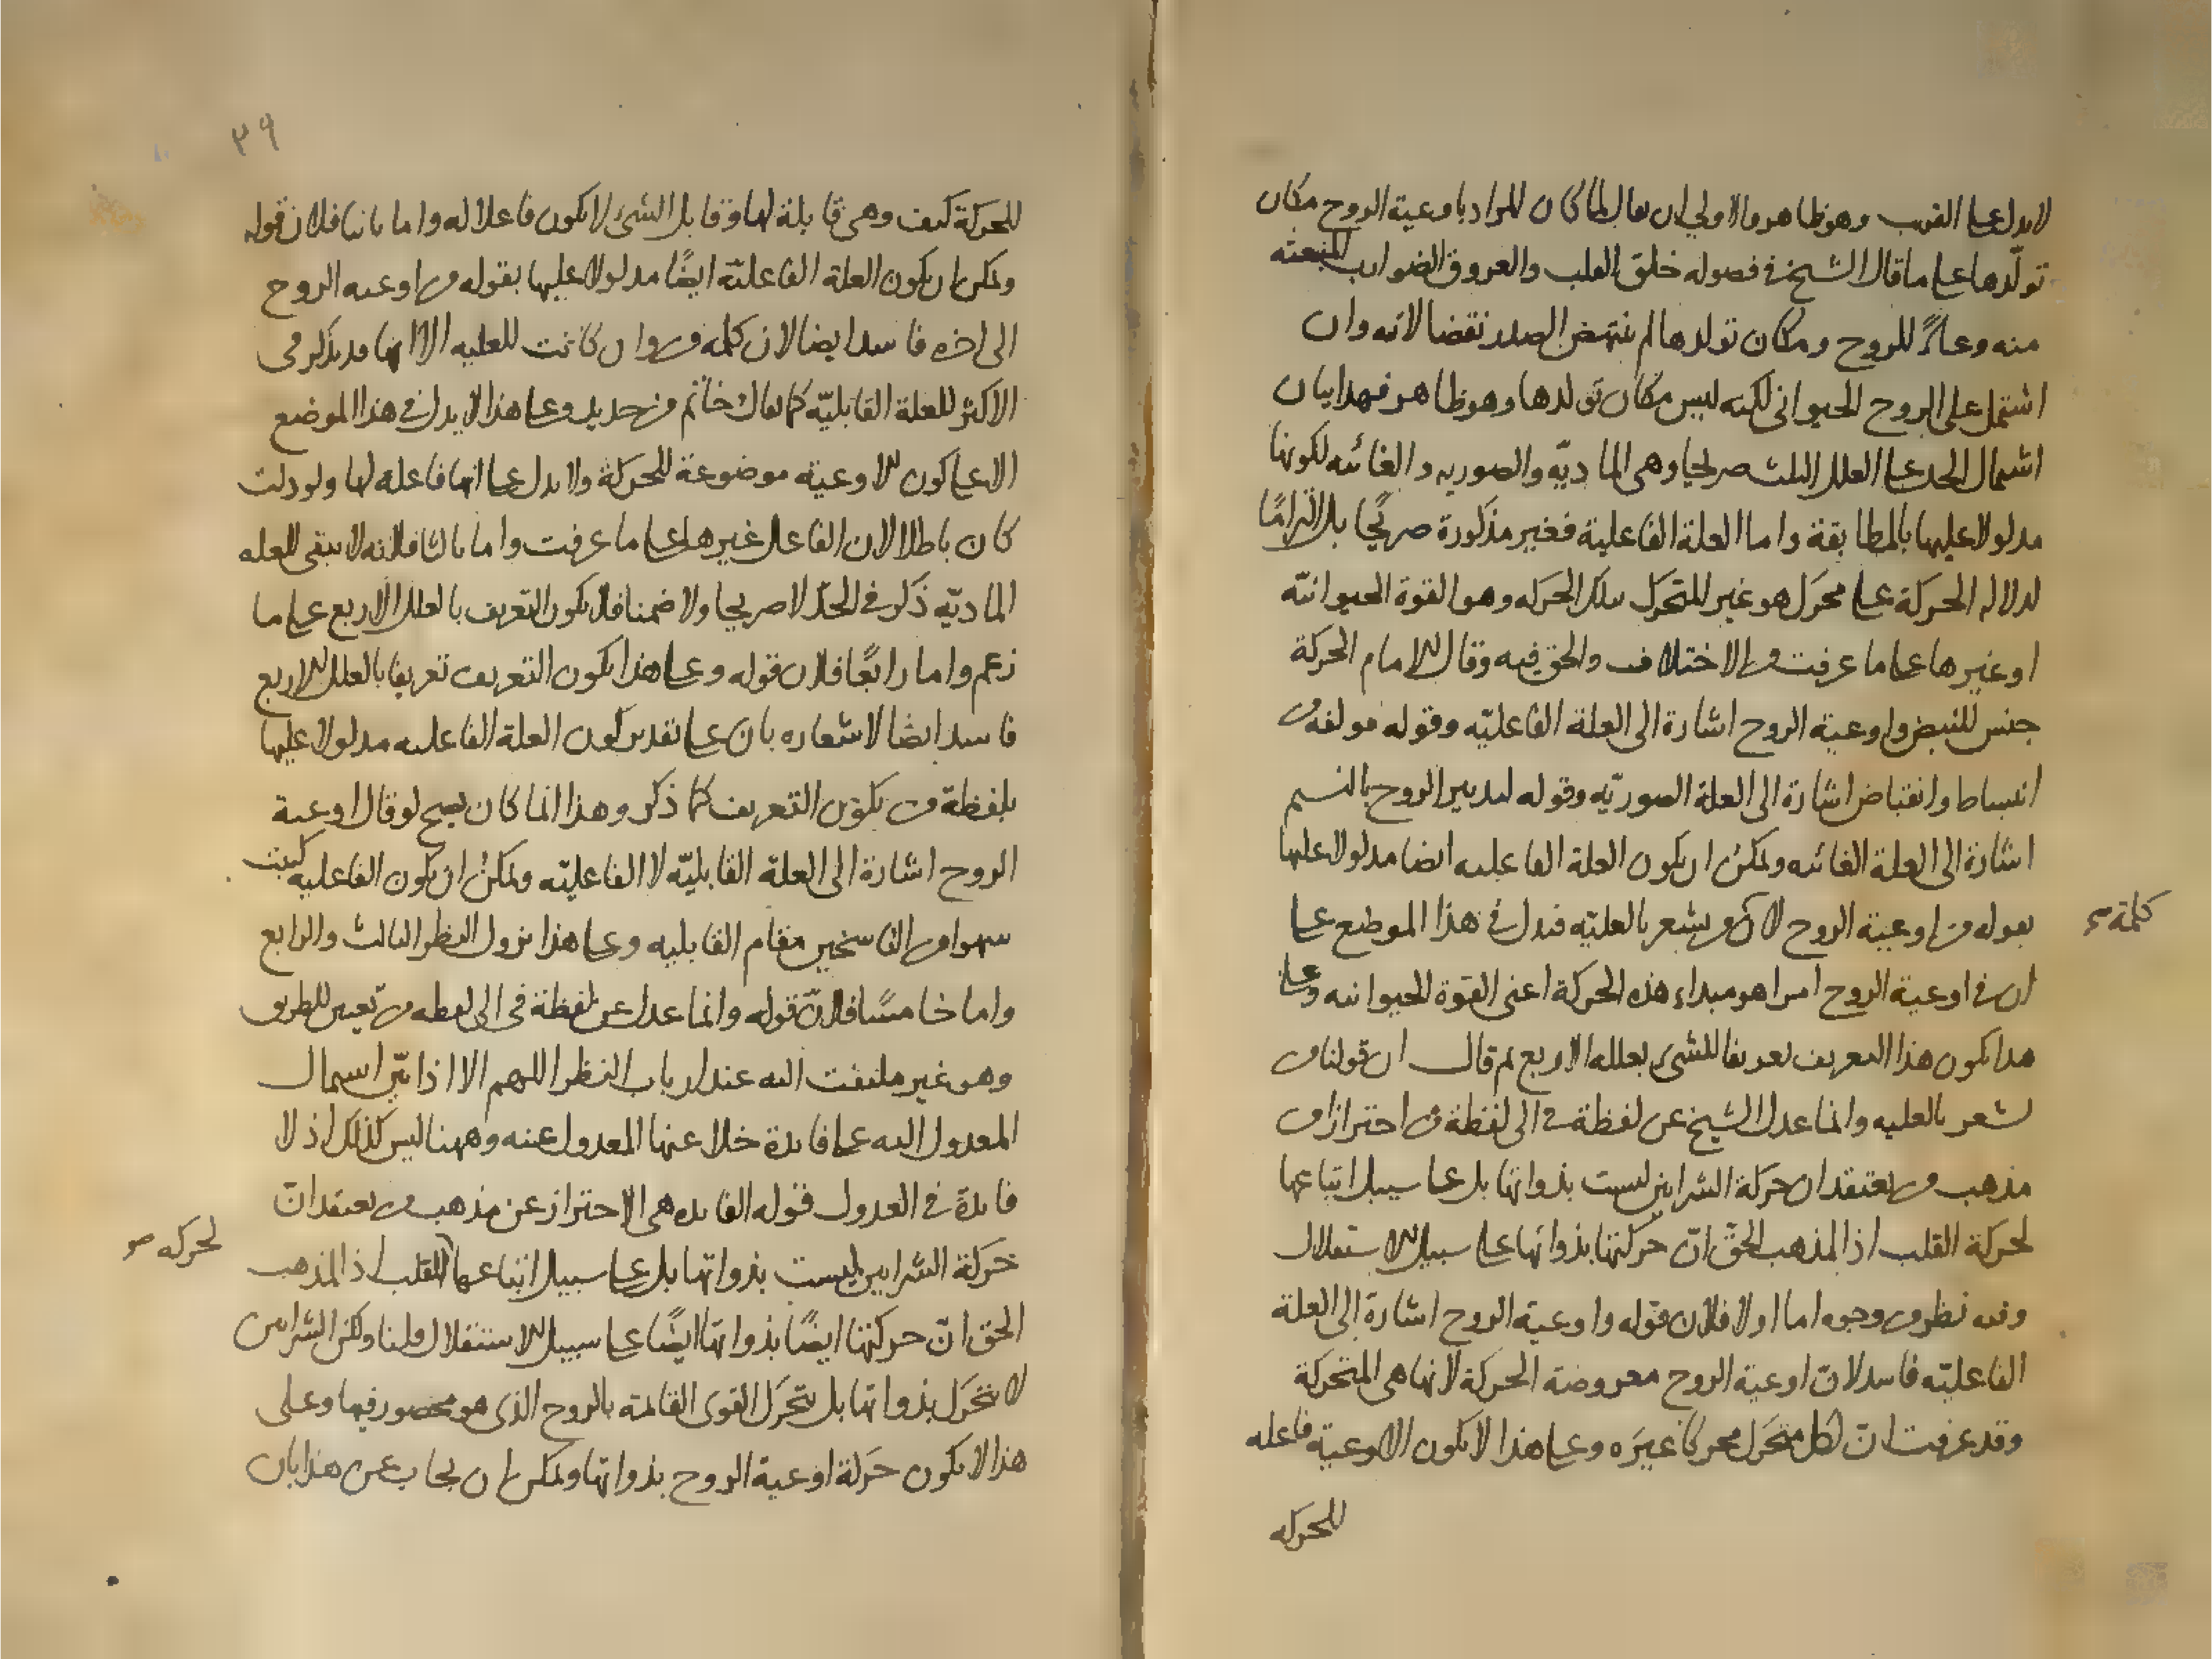 لا يدل على القريب وهو ظاهر والاولى ان يقال لما كان المراد باوعية الروح مكان
تولّدها على ما قال الشيخ في فصوله خلق القلب والعروق الضوارب المنبعثه
منه وعاءً للروح ومكان تولدها لم ينتهض الصدر نقضا لانه وان
اشتمل على الروح الحيواني لكنه ليس مكان تولدها وهو ظاهر فهذا بيان
اشتمال الحد على العلل الثلث صريحا وهى الماديّه والصوريه والغائيه لكونها
مدلولا عليها بالمطابقة واما العلة الفاعلية فغير مذكورة صريحًا بل التزامًا
لدلاله الحركة على محرك هو غير المتحرك بتلك الحركه وهو القوة الحيوانيّه
او غيرها على ما عرفت من الاختلاف والحق فيه وقال الامام الحركة
جنس للنبض واوعية الروح اشارة الى العلة الفاعليّه وقوله مولفه من
انبساط وانقباض اشارة الى العلة الصوريّه وقوله لتدبير الروح بالنسيم
اشارة الى العلة الغائيه ويمكن ان يكون العلة الفاعليه ايضا مدلولا عليها
بقوله من اوعيية الروح لان من يشعر بالعليّه فيدل في هذا الموضع على
كلمة صح
ان في اوعية الروح امرا هو مبداء هذه الحركة اعنى القوة الحيوانيه وعلى
هذا يكون هذا التعريف تعريفا للشىء بعلله الاربع ثم قال ان قولنا من
يشعر بالعليه وانما عدل الشيخ عن لفظة في الى لفظة من احترازا من
مذهب من يعتقد ان حركة الشرايين ليست بذواتها بل على سبيل اتباعها
لحركة القلب اذ المذهب الحقّ انّ حركتها بذواتها على سبيل الاستقلال
وفيه نظر من وجوه اما اولا فلان قوله واوعية الروح اشارة الى العلة
الفاعليّه فاسد لانّ اوعية الروح معروضة الحركة لانها هى المتحركة
وقد عرفت انّ لكل متحرك محركا غيرَه وعلى هذا لا يكون الاوعية فاعله
للحركه
٣٩
للحركة كيف وهى قابلة لها وقابل الشىء لا يكون فاعلا له واما ثانيا فلان قوله
ويمكن ان يكون العلة الفاعليّه ايضًا مدلولا عليها بقوله من اوعيه الروح
الى اخره فاسد ايضا لان كلمه من وان كانت للعليه الا انها قد يذكر في
الاكثر للعلة القابليّه كما يقال خاتم من حديد وعلى هذا لا يدل في هذا الموضع
الا على كون الاوعية موضوعة للحركة ولا يدل على انها فاعلة لها ولو دلت
كان باطلا لان الفاعل غيرها على ما عرفت واما ثالثا فلانه لا يبقى للعله
الماديّه ذكر في الحدّ لا صريحا ولا ضمنا فلا يكون التعريف بالعلل الاربع على ما
زعم واما رابعًا فلان قوله وعلى هذا يكون التعريف تعريفا بالعلل الاربع
فاسد ايضا لاشعاره بان على تقدير كون العلة الفاعليه مدلولا عليها
بلفظة من يكون التعريف كما ذكر وهذا انما كان يصح لو قال اوعية
الروح اشارة الى العلة القابليّه لا الفاعليّه ويمكن ان يكون الفاعليه كتبت
سهوا من الناسخين مقام القابليه وعلى هذا يزول النظر الثالث والرابع
واما خامسًا فلانّ قوله وانما عدل عن لفظة في الى لفظه من تعيين للطريق
وهو غير ملتفت اليه عند ارباب النظر اللهم الا اذا بيّن اشتمال
المعدول اليه على فايدة خلا عنها المعدول عنه وههنا ليس كذلك اذ لا
فايدة في العدول قوله الفايده هى الاحتراز عن مذهب من يعتقد انّ
حركة الشرايين ليست بذواتها بل على سبيل اتباعها للقلب اذ المذهب
لحركه صح
الحق انّ حركتها ايضًا بذواتها ايضًا على سبيل الاستقلال قلنا ولكن الشرايين
لا يتحرك بذواتها بل بتحرك القوى القائمة بالروح الذى هو محصور فيها وعلى
هذا لا يكون حركة اوعية الروح بذواتها ويمكن ان يجاب عن هذا بان